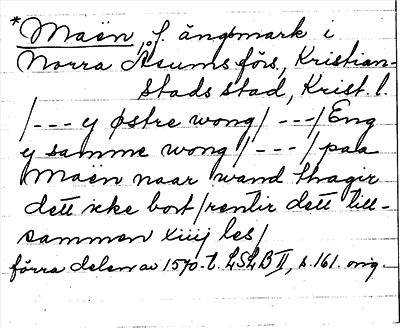 *Maën, f. ängsmark i
Norra Åsums förs., Kristian-
stads stad, Krist. l.
/--- y østre wong/ ---/ Eng
y samme wong/ ---/ paa
Maën naar wand thagir
dett icke bort/rentir dett till-
sammen xiiij les/
förra delen av 1570-t. LSLB II, s. 161. orig.